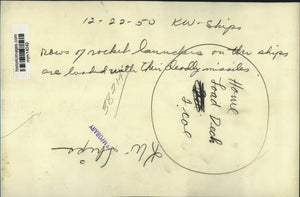 12-22-50 KW-Ships
Rows of rocket launchers on the ships
are loaded with their deadly missiles.
Home
Toad Deck
2 col
KW Ships